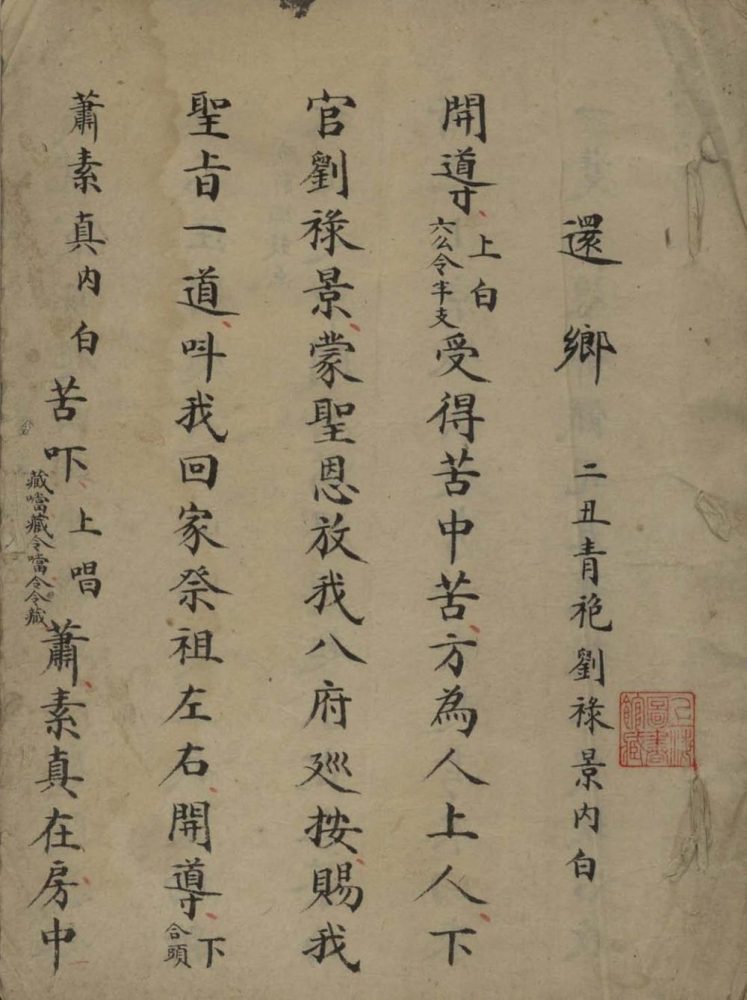 還鄉 二丑青袍劉祿景内白
開導上白六公令半支受得苦中苦方為人上人下
官劉祿景蒙聖恩放我八府廵按賜我
聖旨一道呌我回家祭祖左右開導下合頭
蕭素真内白苦吓上唱藏噹藏令噹令令藏蕭素真在房中
上海圖書館藏